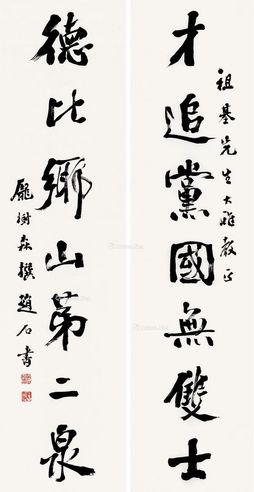 才追黨國無雙士
祖基先生大雅教正
德比鄉山第二泉
龐樹森撰趙石書